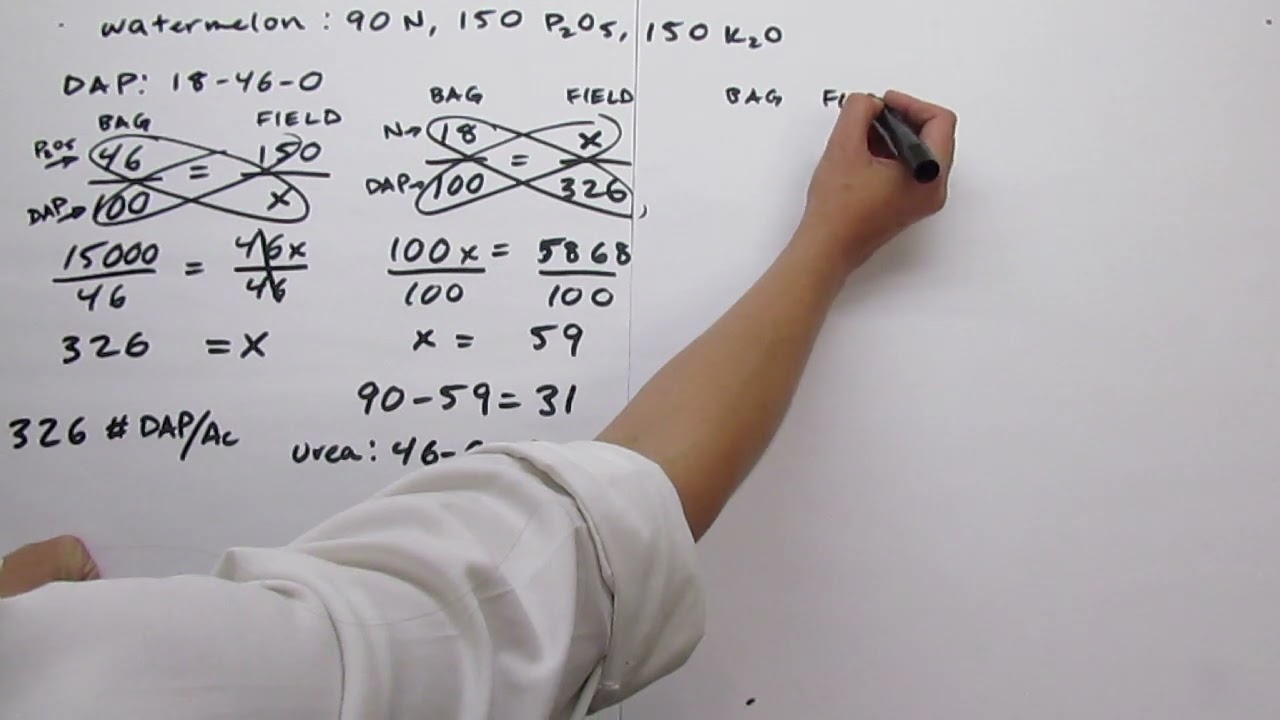 watermelon: 90 N, 150 P₂O₅, 150 K₂O
DAP: 18-46-0
BAG FIELD
P₂O₅→ 46 = 150
DAP→ 100 x
15000 = 46x
46 46
326 = x
326 # DAP/Ac
BAG FIELD
N→ 18 = x
DAP→ 100 326
100x = 5868
100 100
x = 59
90-59=31
urea: 46-
BAG